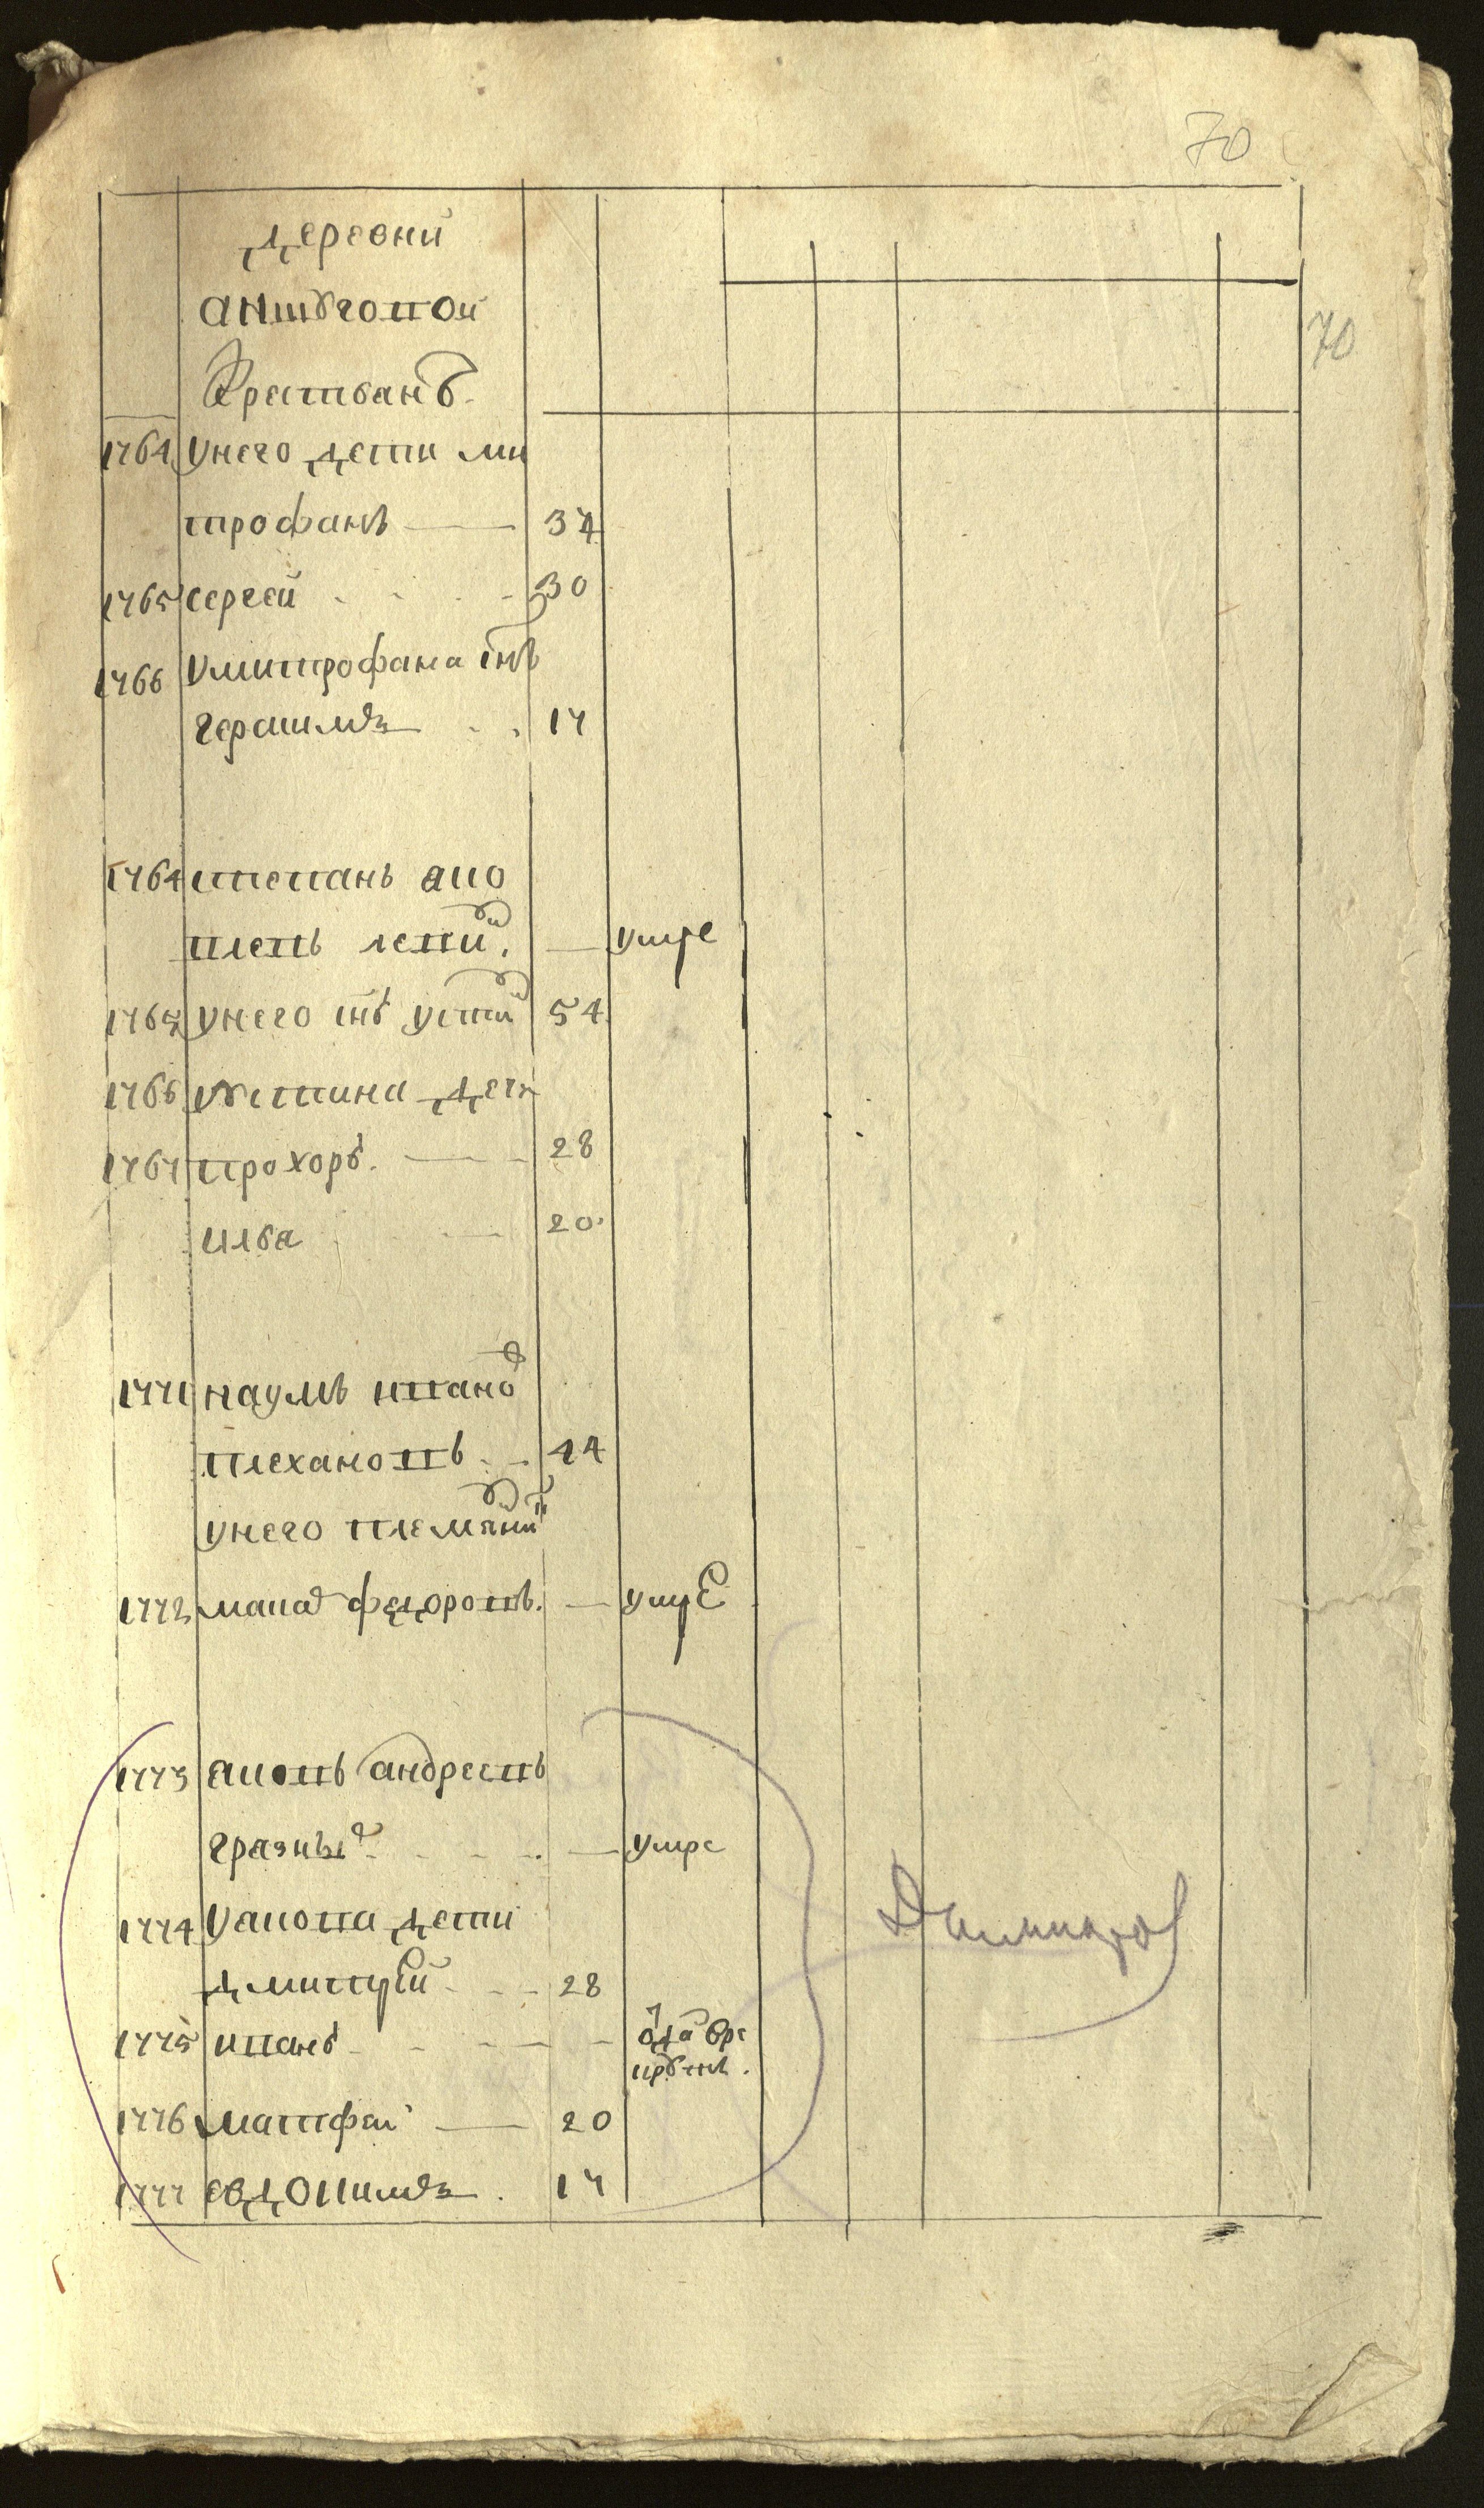 70
деревни
антуговой
70
крестьянъ
1764 у него дети ми
трофанъ 37
1765 сергей 30
1766 у митрофана снъ
герасимъ 17
1764 степанъ
умре
1765 у него снъ устин 54
1766 устина дети
1767 прохоръ 28
илья 20
1771 наумъ ивано
плехановъ 44
у него племяни
1772 федоровъ умре
1773 аиовъ андреевъ
грязные умре
1774 у аиова дети
дмитрей 28
1775 иванъ
1776 матфеи 20
1777 евдокимъ 17